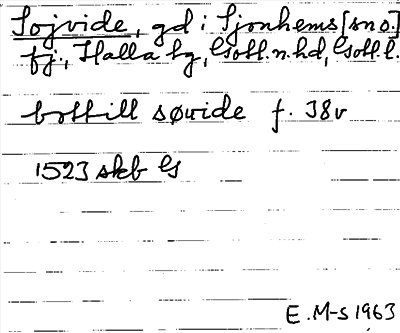 Sojvide, gd i Sjonhems [sn o.]
fj., Halla tg, Gotl. n. hd, Gotl. l.
bottill søvide f. 38v
1523 skb G
E. M-s 1963